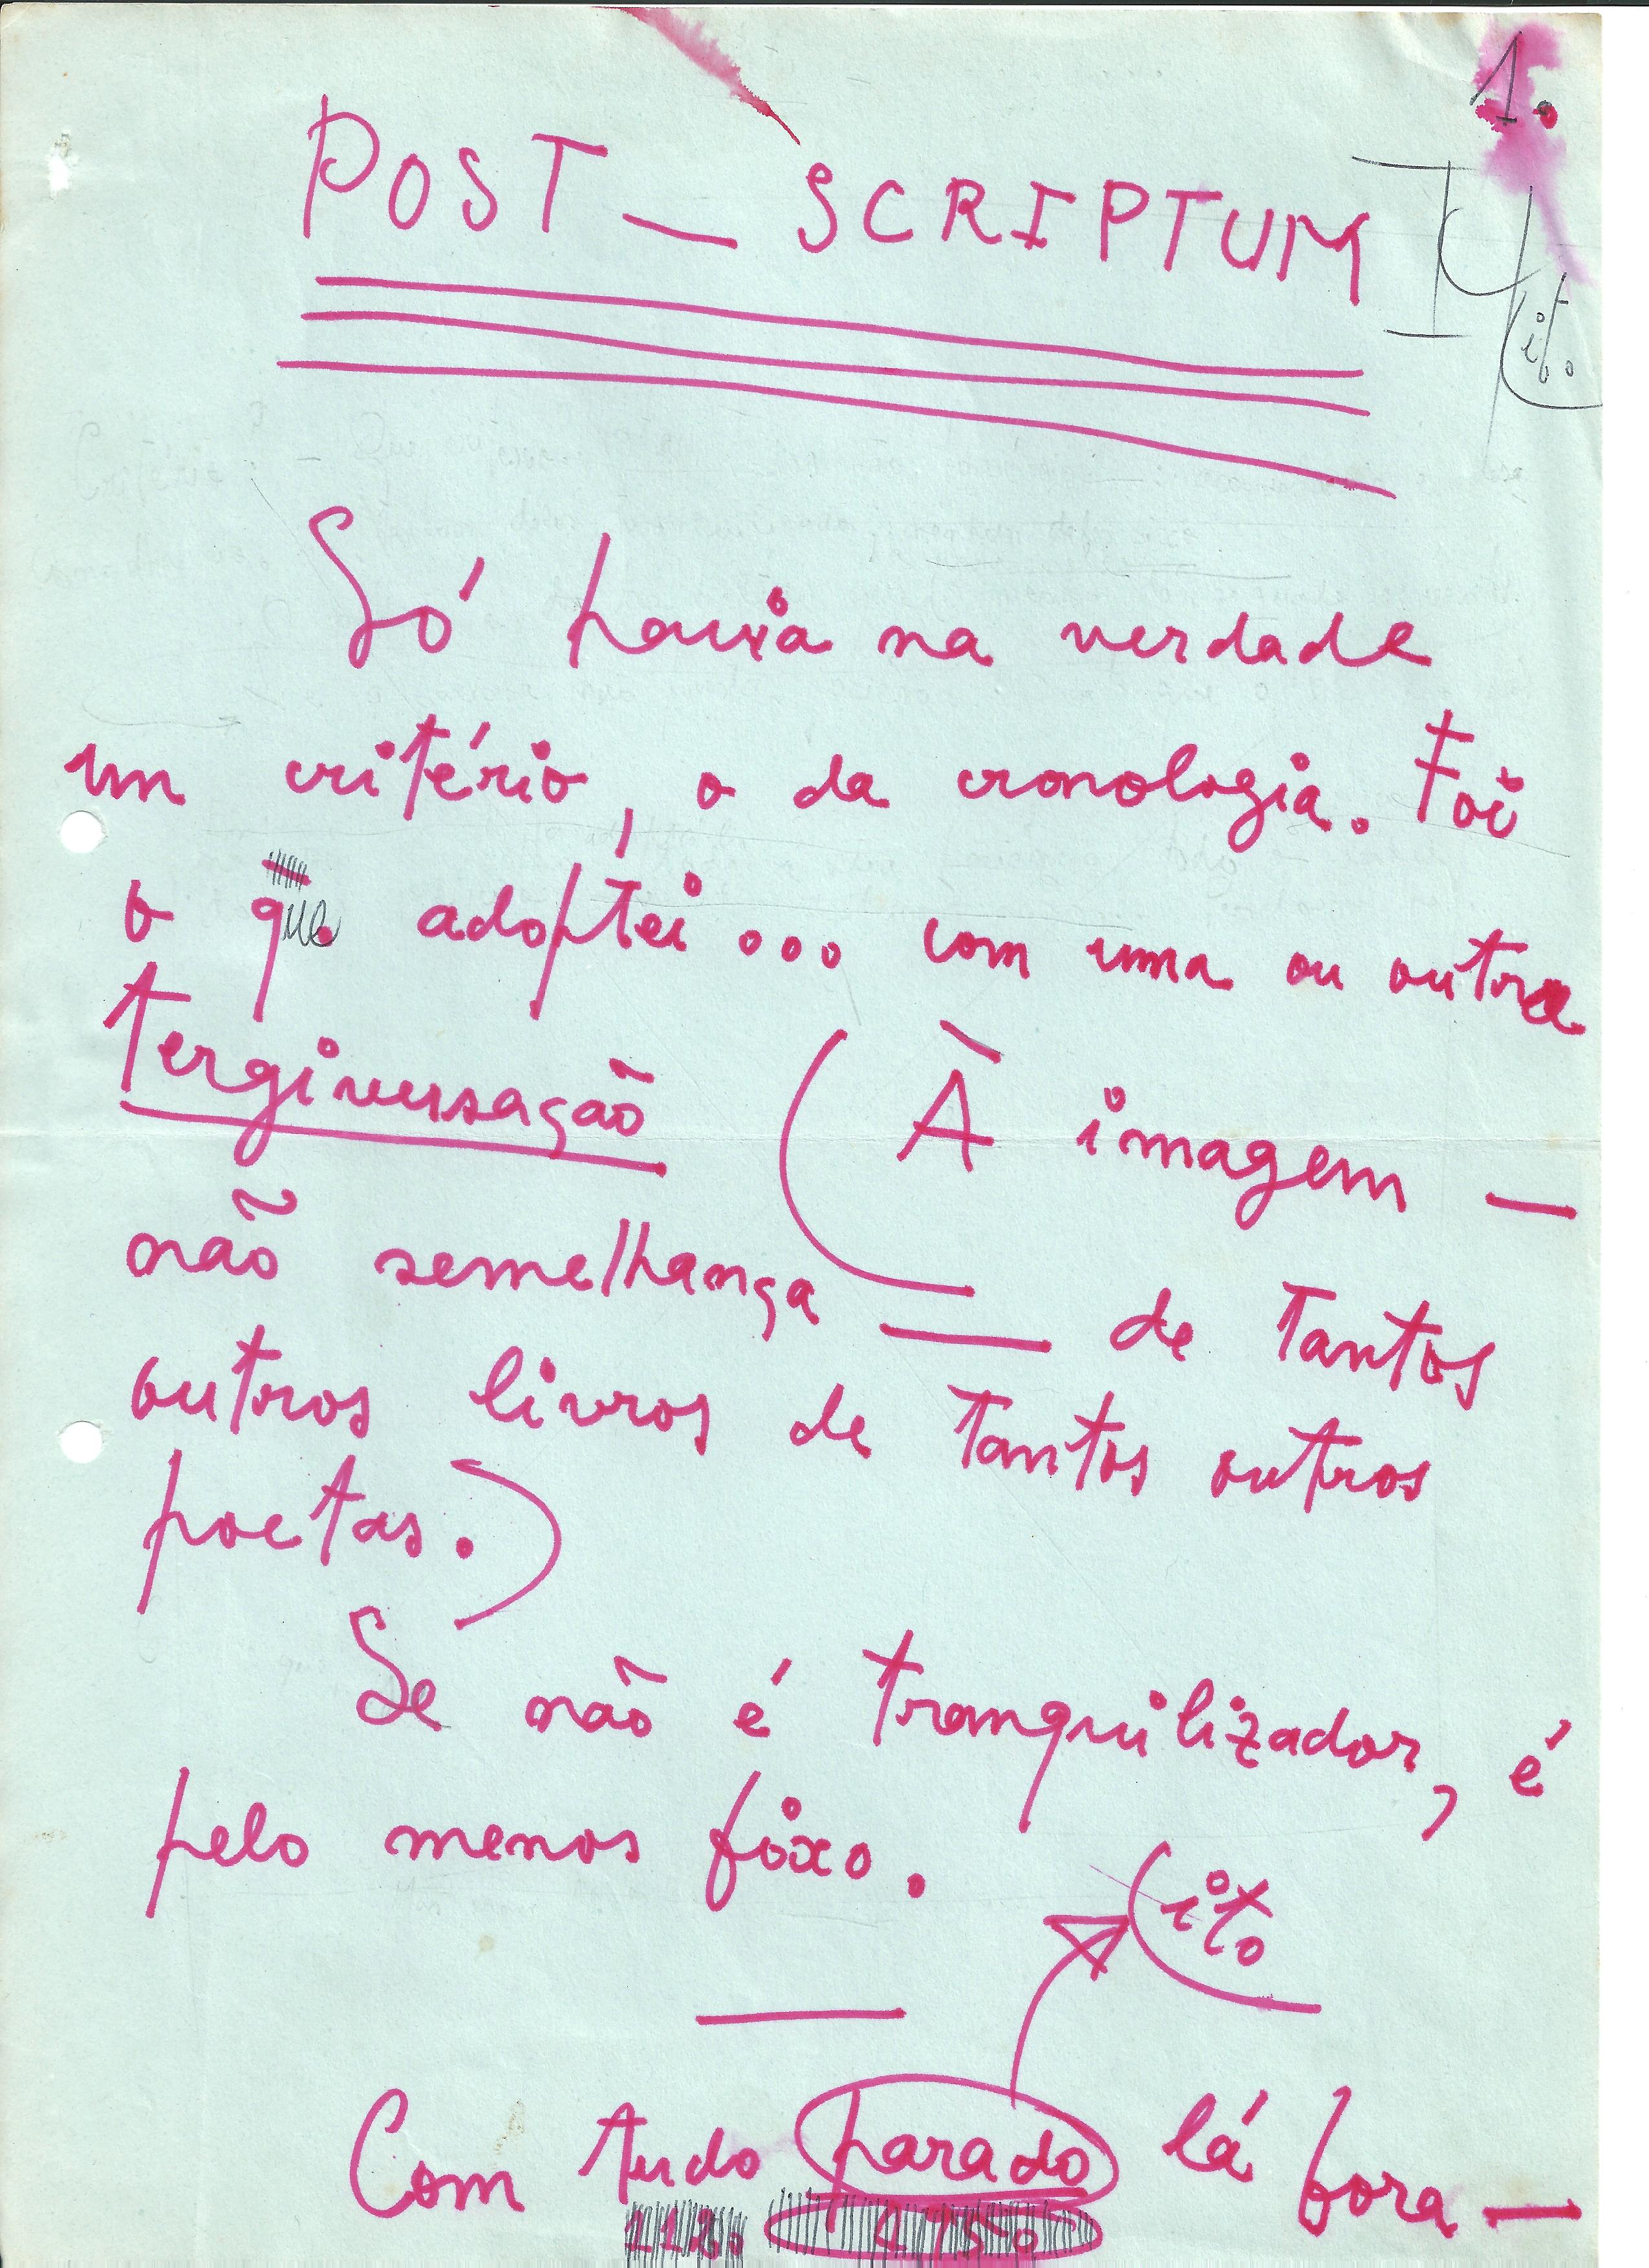 1.
POST_SCRIPTUM
Só havia na verdade
um critério, o da cronologia. Foi
o que adoptei... com uma ou outra
tergiversação (À imagem —
não semelhança — de tantos
outros livros de tantos outros
poetas.)
Se não é tranquilizador, é
pelo menos fixo.
ito
Com tudo parado lá fora —